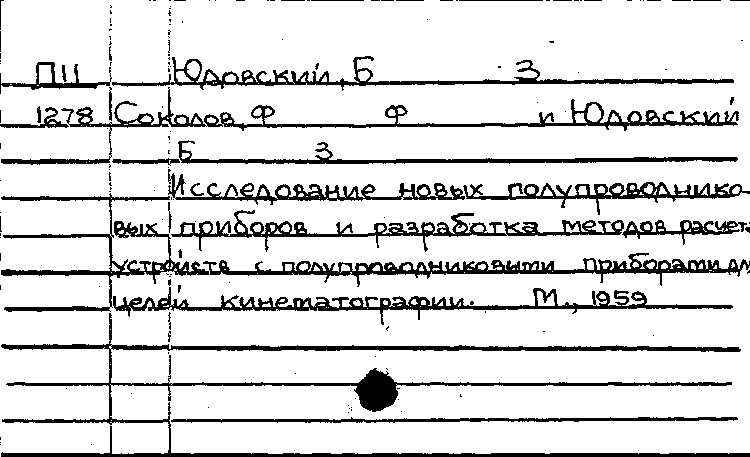 П11 Юдовский, Б З
1278 Соколов, Ф Ф и Юдовский
Б З
Исследование новых полупроводнико-
вых приборов и разработка методов расчета
устройств с полупроводниковыми приборами для
целей кинематографии. М., 1959